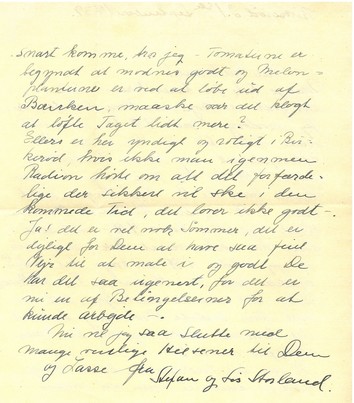 snart komme, tror jeg - Tomaterne er
begyndt at modnes godt og Melon-
planterne er ved at løbe ud af
Bænken, maaske var det klogt
at løfte Taget lidt mere?
Ellers er her yndigt og roligt i Bir-
kerød, hvis ikke man igennem
Radioen hørte om alt det forfærde-
lige der sikkert vil ske i den
kommende Tid, det lover ikke godt -.
Ja! det er vel nok Sommer, det er
dejligt for Dem at have saa fint
Vejr til at male i og godt De
har det saa ugenert, for det er
nu en af Betingelserne for at
kunde arbejde -.
Nu vil jeg saa slutte med
mange venlige Hilsener til Dem
og Lasse fra
og Lis